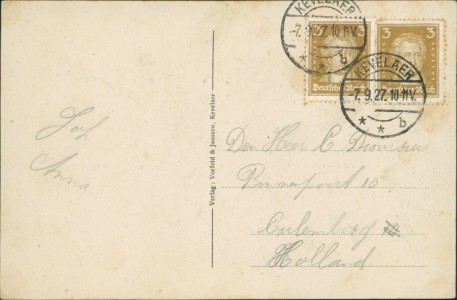 KEVELAER
-7.9.27.10-11V.
* * b
3 3
Deutsches Reich
KEVELAER
-7.9.27.10-11V.
* * b
Anna
Verlag: Vorfeld & Janssen, Kevelaer
Den Heer C
10
Culemborg
Holland